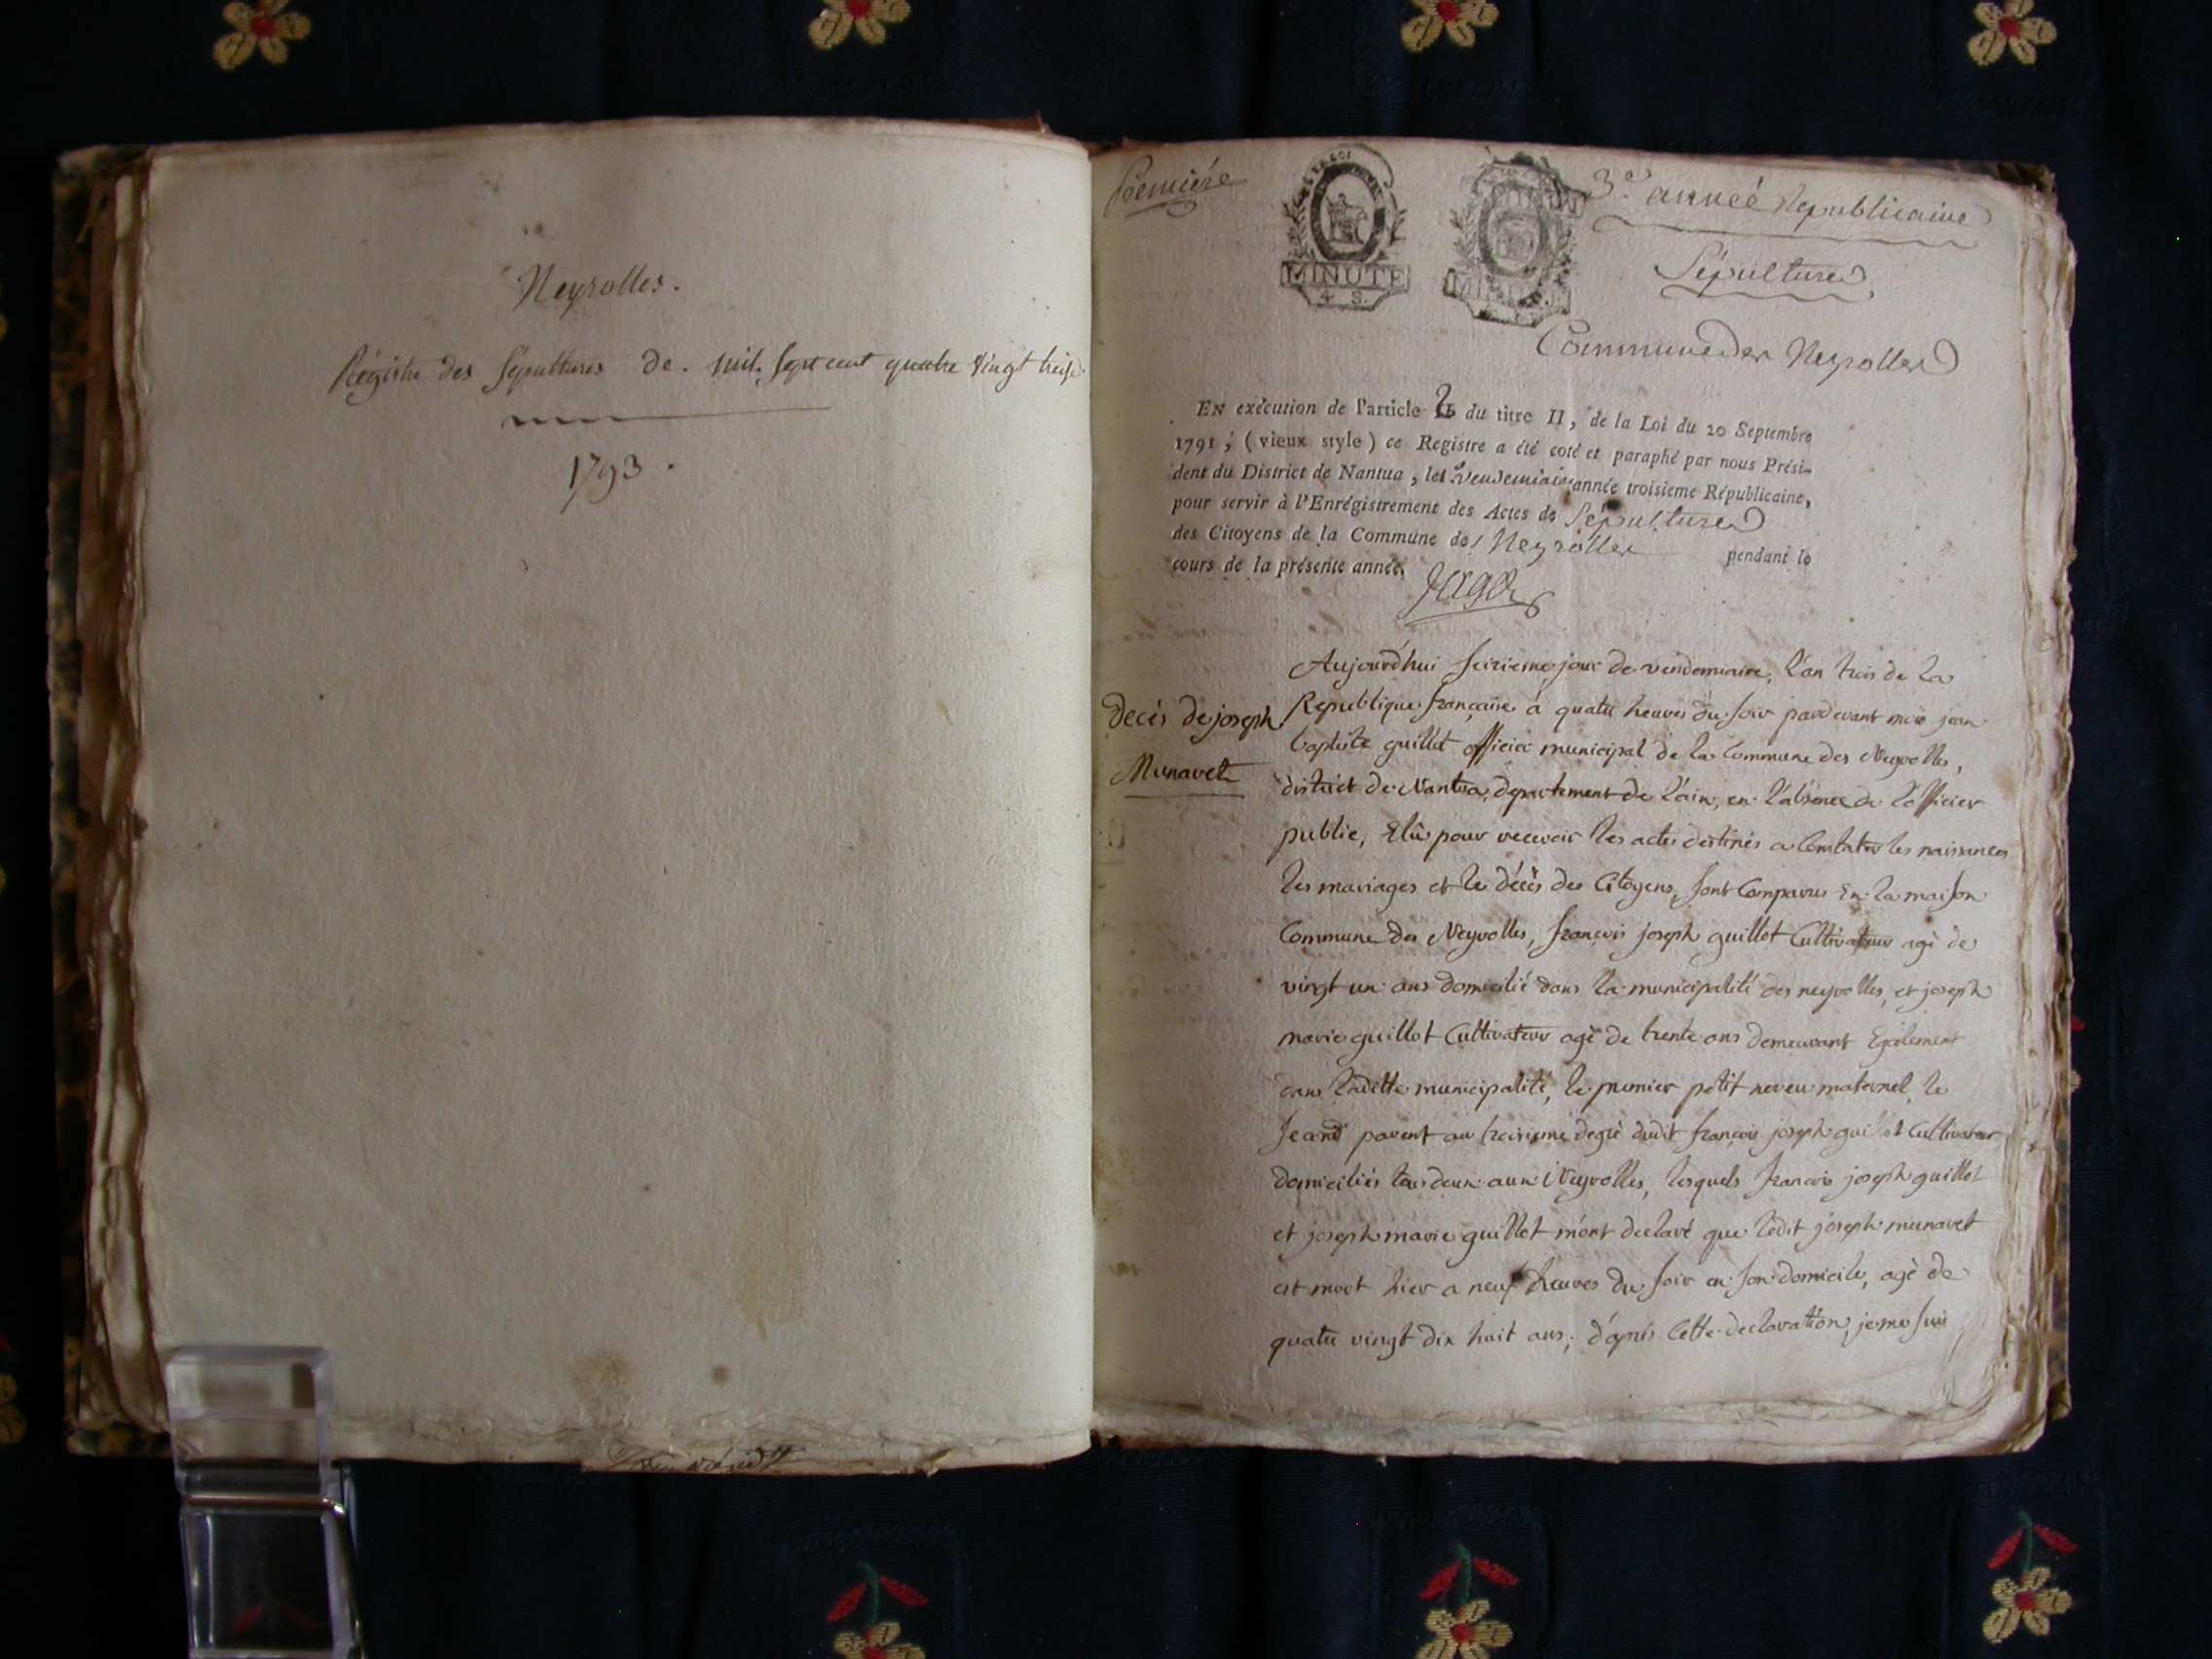 Neyrolles.
Régistre des Sépultures de. mil. Sept cent quatre vingt treize.
1793.
Premiére
MINUTE
4 S.
3e. année Republicaine
Sépultures
Commune des Neyrolles
EN exécution de l'article 2 du titre II, de la Loi du 20 Septembre
1791, (vieux style) ce Registre a été coté et paraphé par nous Prési-
dent du District de Nantua, le 1er. Vendemiaire année troisieme Républicaine,
pour servir à l'Enrégistrement des Actes de Sépultures
des Citoyens de la Commune des Neyrolles pendant le
cours de la présente année.
Aujourd'hui seizieme jour de vendemiaire, l'an trois de la
Republique francaise à quatre heures du soir pardevant moi jean
baptiste guillot officier municipal de la Commune des Neyrolles,
district de Nantua, departement de l'ain, en l'absence de l'officier
public, Elû pour recevoir les actes destinés a Constater les naissances
les mariages et le décès des Citoyens, sont Comparus En la maison
Commune des Neyrolles, francois joseph guillot Cultivateur agé de
vingt un ans domicilié dans la municipalité des neyrolles, et joseph
marie guillot Cultivateur agé de trente ans demeurant Egalement
dans laditte municipalité, le premier petit neveu maternel, le
second parent au troisieme degré dudit françois joseph guillot Cultivateur
domiciliés tous deux aux Neyrolles, lesquels francois joseph guillot
et joseph marie guillot m'ont declaré que ledit joseph munavet
est mort hier a neuf heures du soir en son domicile, agé de
quatre vingt dix huit ans; d'aprés Cette declaration, je me suis
Decès de joseph
Munavet